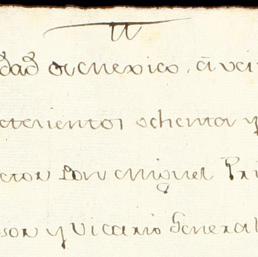 dad de Mexico, a vei
setecientos ochenta y
ctor Don Miguel Pri
sor y Vicario General